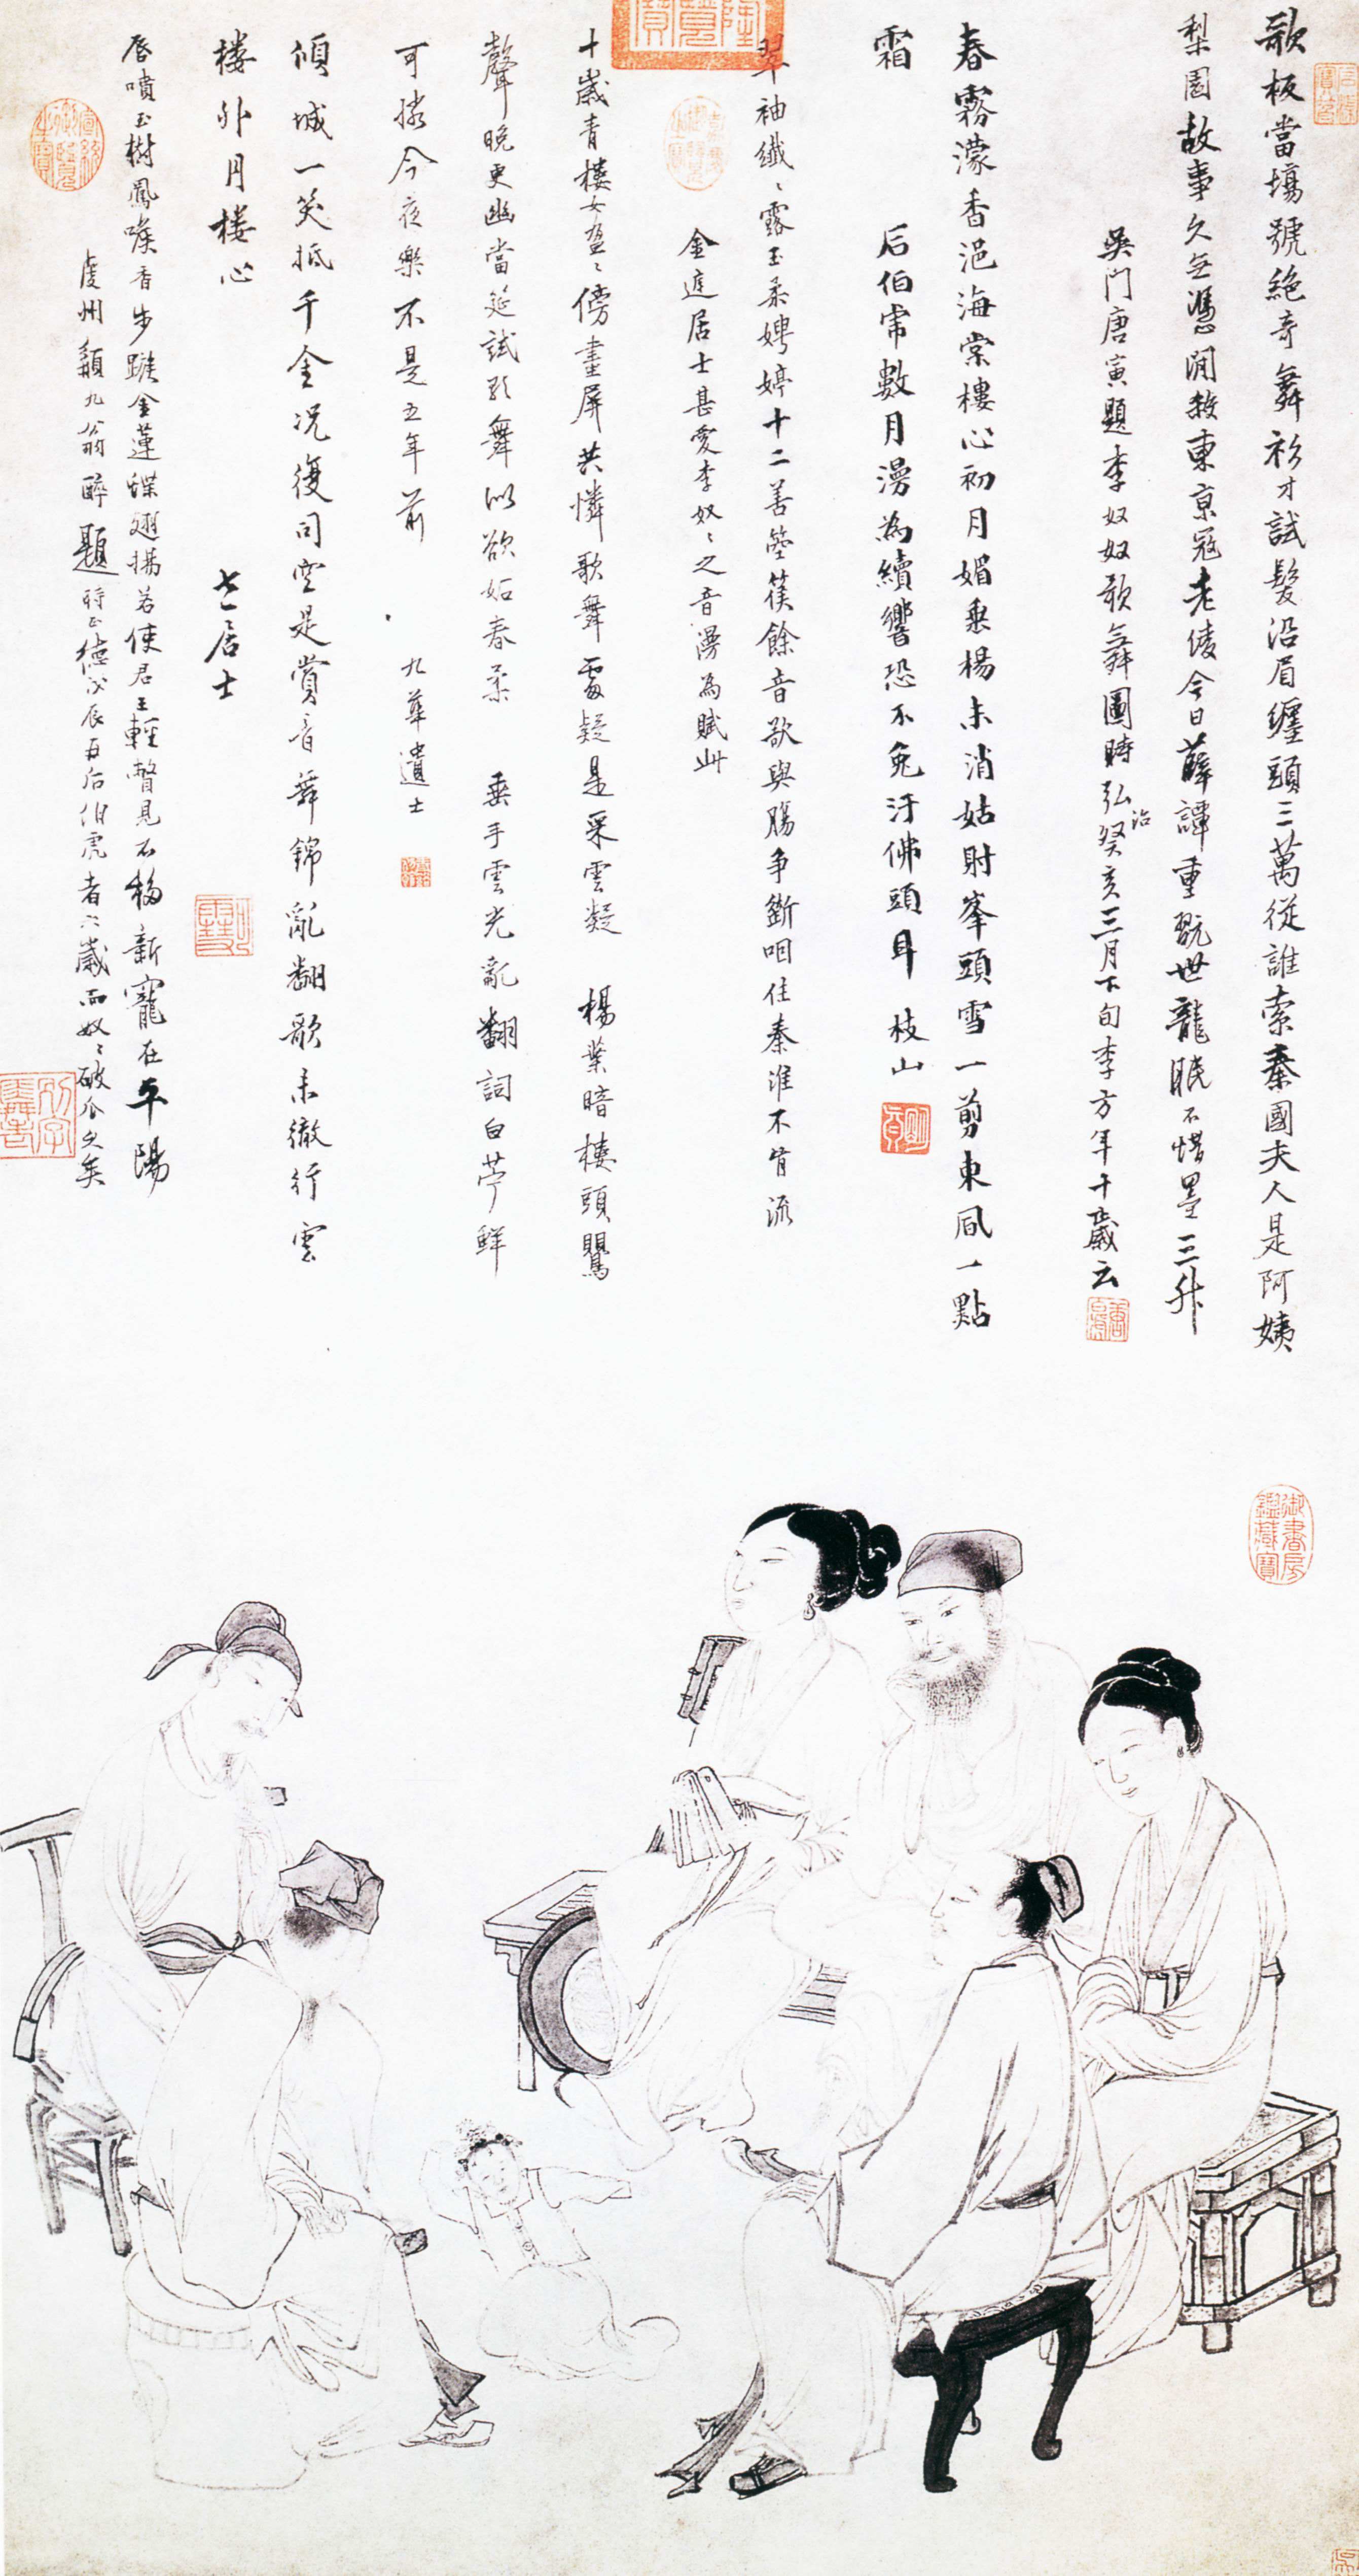 歌板當場號絕奇舞衫才試髮沿眉纏頭三萬從誰索秦國夫人是阿姨
梨園故事久無憑閒殺東京冠老陵今日薛譚重翫世龍眠不惜墨三升
吳門唐寅題李奴奴歌舞圖時弘治癸亥三月下旬李方年十歲云
春霧濛香浥海棠樓心初月媚垂楊未消姑射峯頭雪一剪東風一點
霜
后伯常數月漫為續響恐不免汙佛頭耳 枝山
翠袖纖〻露玉柔娉婷十二善箜篌餘音欲與腸爭斷咽住秦淮不肯流
金庭居士甚愛李奴〻之音漫為賦此
十歲青樓女盈〻傍畫屏共憐歌舞處疑是采雲凝 楊葉暗樓頭鶯
聲晚更幽當筵試歌舞似欲妬春柔 垂手雲光亂翻詞白苧鮮
可憐今夜樂不是五年前 九華遺士
傾城一笑抵千金況復司空是賞音舞錦亂翻歌未徹行雲
樓外月樓心
七一居士
唇噴玉樹鳳喉香步蹴金蓮蝶翅揚若使君王輕瞥見不移新寵在平陽
虔州穎九翁醉題時正德戊辰再后伯虎者六歲而奴〻破瓜久矣
御書房鑑藏寶